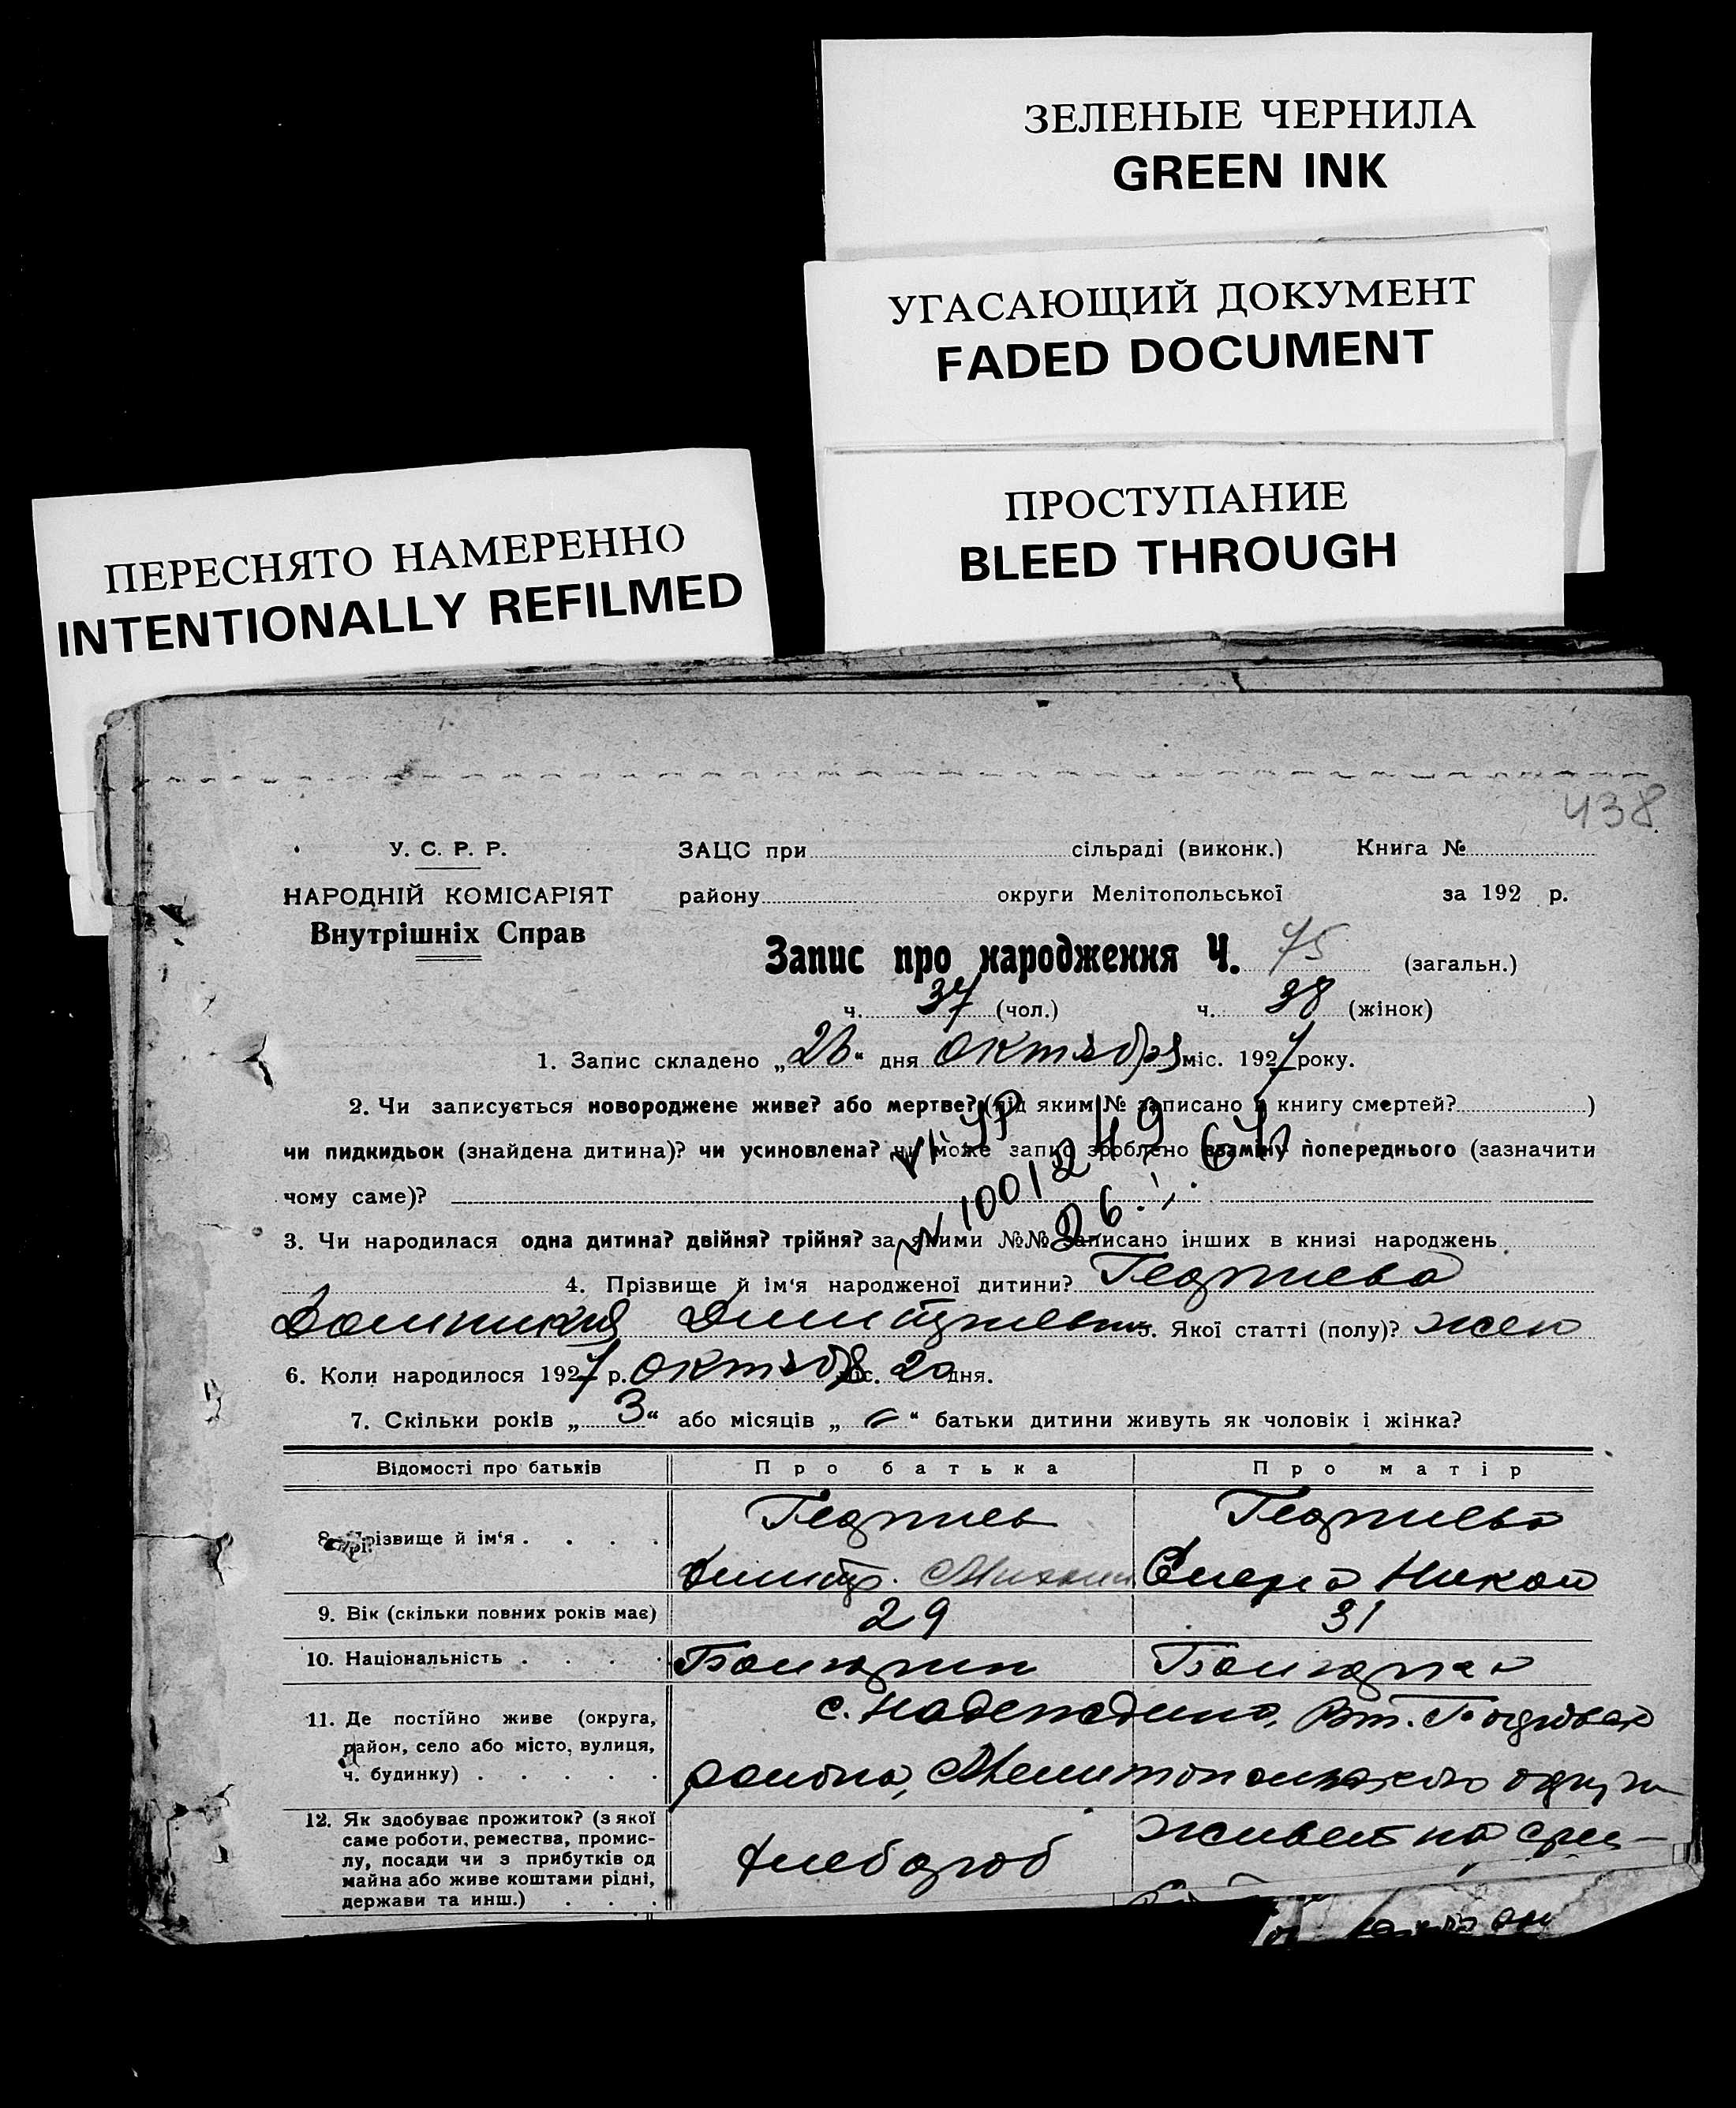 ЗЕЛЕНЫЕ ЧЕРНИЛА
GREEN INK
УГАСАЮЩИЙ ДОКУМЕНТ
FADED DOCUMENT
ПРОСТУПАНИЕ
BLEED THROUGH
ПЕРЕСНЯТО НАМЕРЕННО
INTENTIONALLY REFILMED
438
У. С. Р. Р.
НАРОДНІЙ КОМІСАРІЯТ
Внутрішніх Справ
ЗАЦС при сільраді (виконк.) Книга №
району округи Мелітопольської за 192 р.
Запис про народження Ч. 75 (загальн.)
ч. 37 (чол.) ч. 38 (жінок)
1. Запис складено „ “ дня октября міс. 1927 року.
2. Чи записується новороджене живе? або мертве? (під яким № записано в книгу смертей? )
чи пидкидьок (знайдена дитина)? чи усиновлена? чи може запис зроблено взаміну попереднього (зазначити
чому саме)?
3. Чи народилася одна дитина? двійня? трійня? за якими №№ записано інших в книзі народжень
4. Прізвище й ім‘я народженої дитини? Георгиева
Домникия 5. Якої статті (полу)? жен
6. Коли народилося 1927 р. октября міс. 20 дня.
7. Скільки років „ 3 “ або місяців „ “ батьки дитини живуть як чоловік і жінка?
Відомості про батьків Про батька Про матір
8. Прізвище й ім‘я . . . . Георгиев Георгиева
Димитр. Михаил Никол
9. Вік (скільки повних років має) 29 31
10. Національність . . . . Болгарин Болгарка
11. Де постійно живе (округа,
район, село або місто, вулиця,
ч. будинку) . . . . .
с. Надеждино,
района, Мелитопольского округа
12. Як здобуває прожиток? (з якої
саме роботи, ремества, промис-
лу, посади чи з прибутків од
майна або живе коштами рідні,
держави та инш.) . . .
хлебороб
живет на сред-